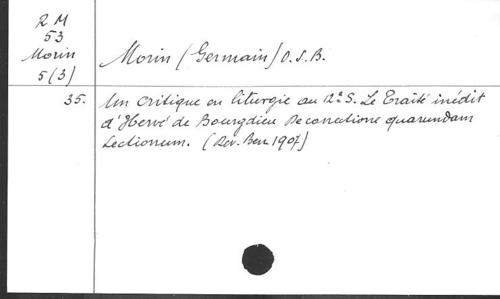 2 M
53
Morin
5(3)
Morin (Germain) O.S.B.
35. Un critique en liturgie au 12e S. Le Traité inédit
d'Hervé de Bourgdieu De correctione quarundam
Lectionum. (Rev. Ben. 1907)